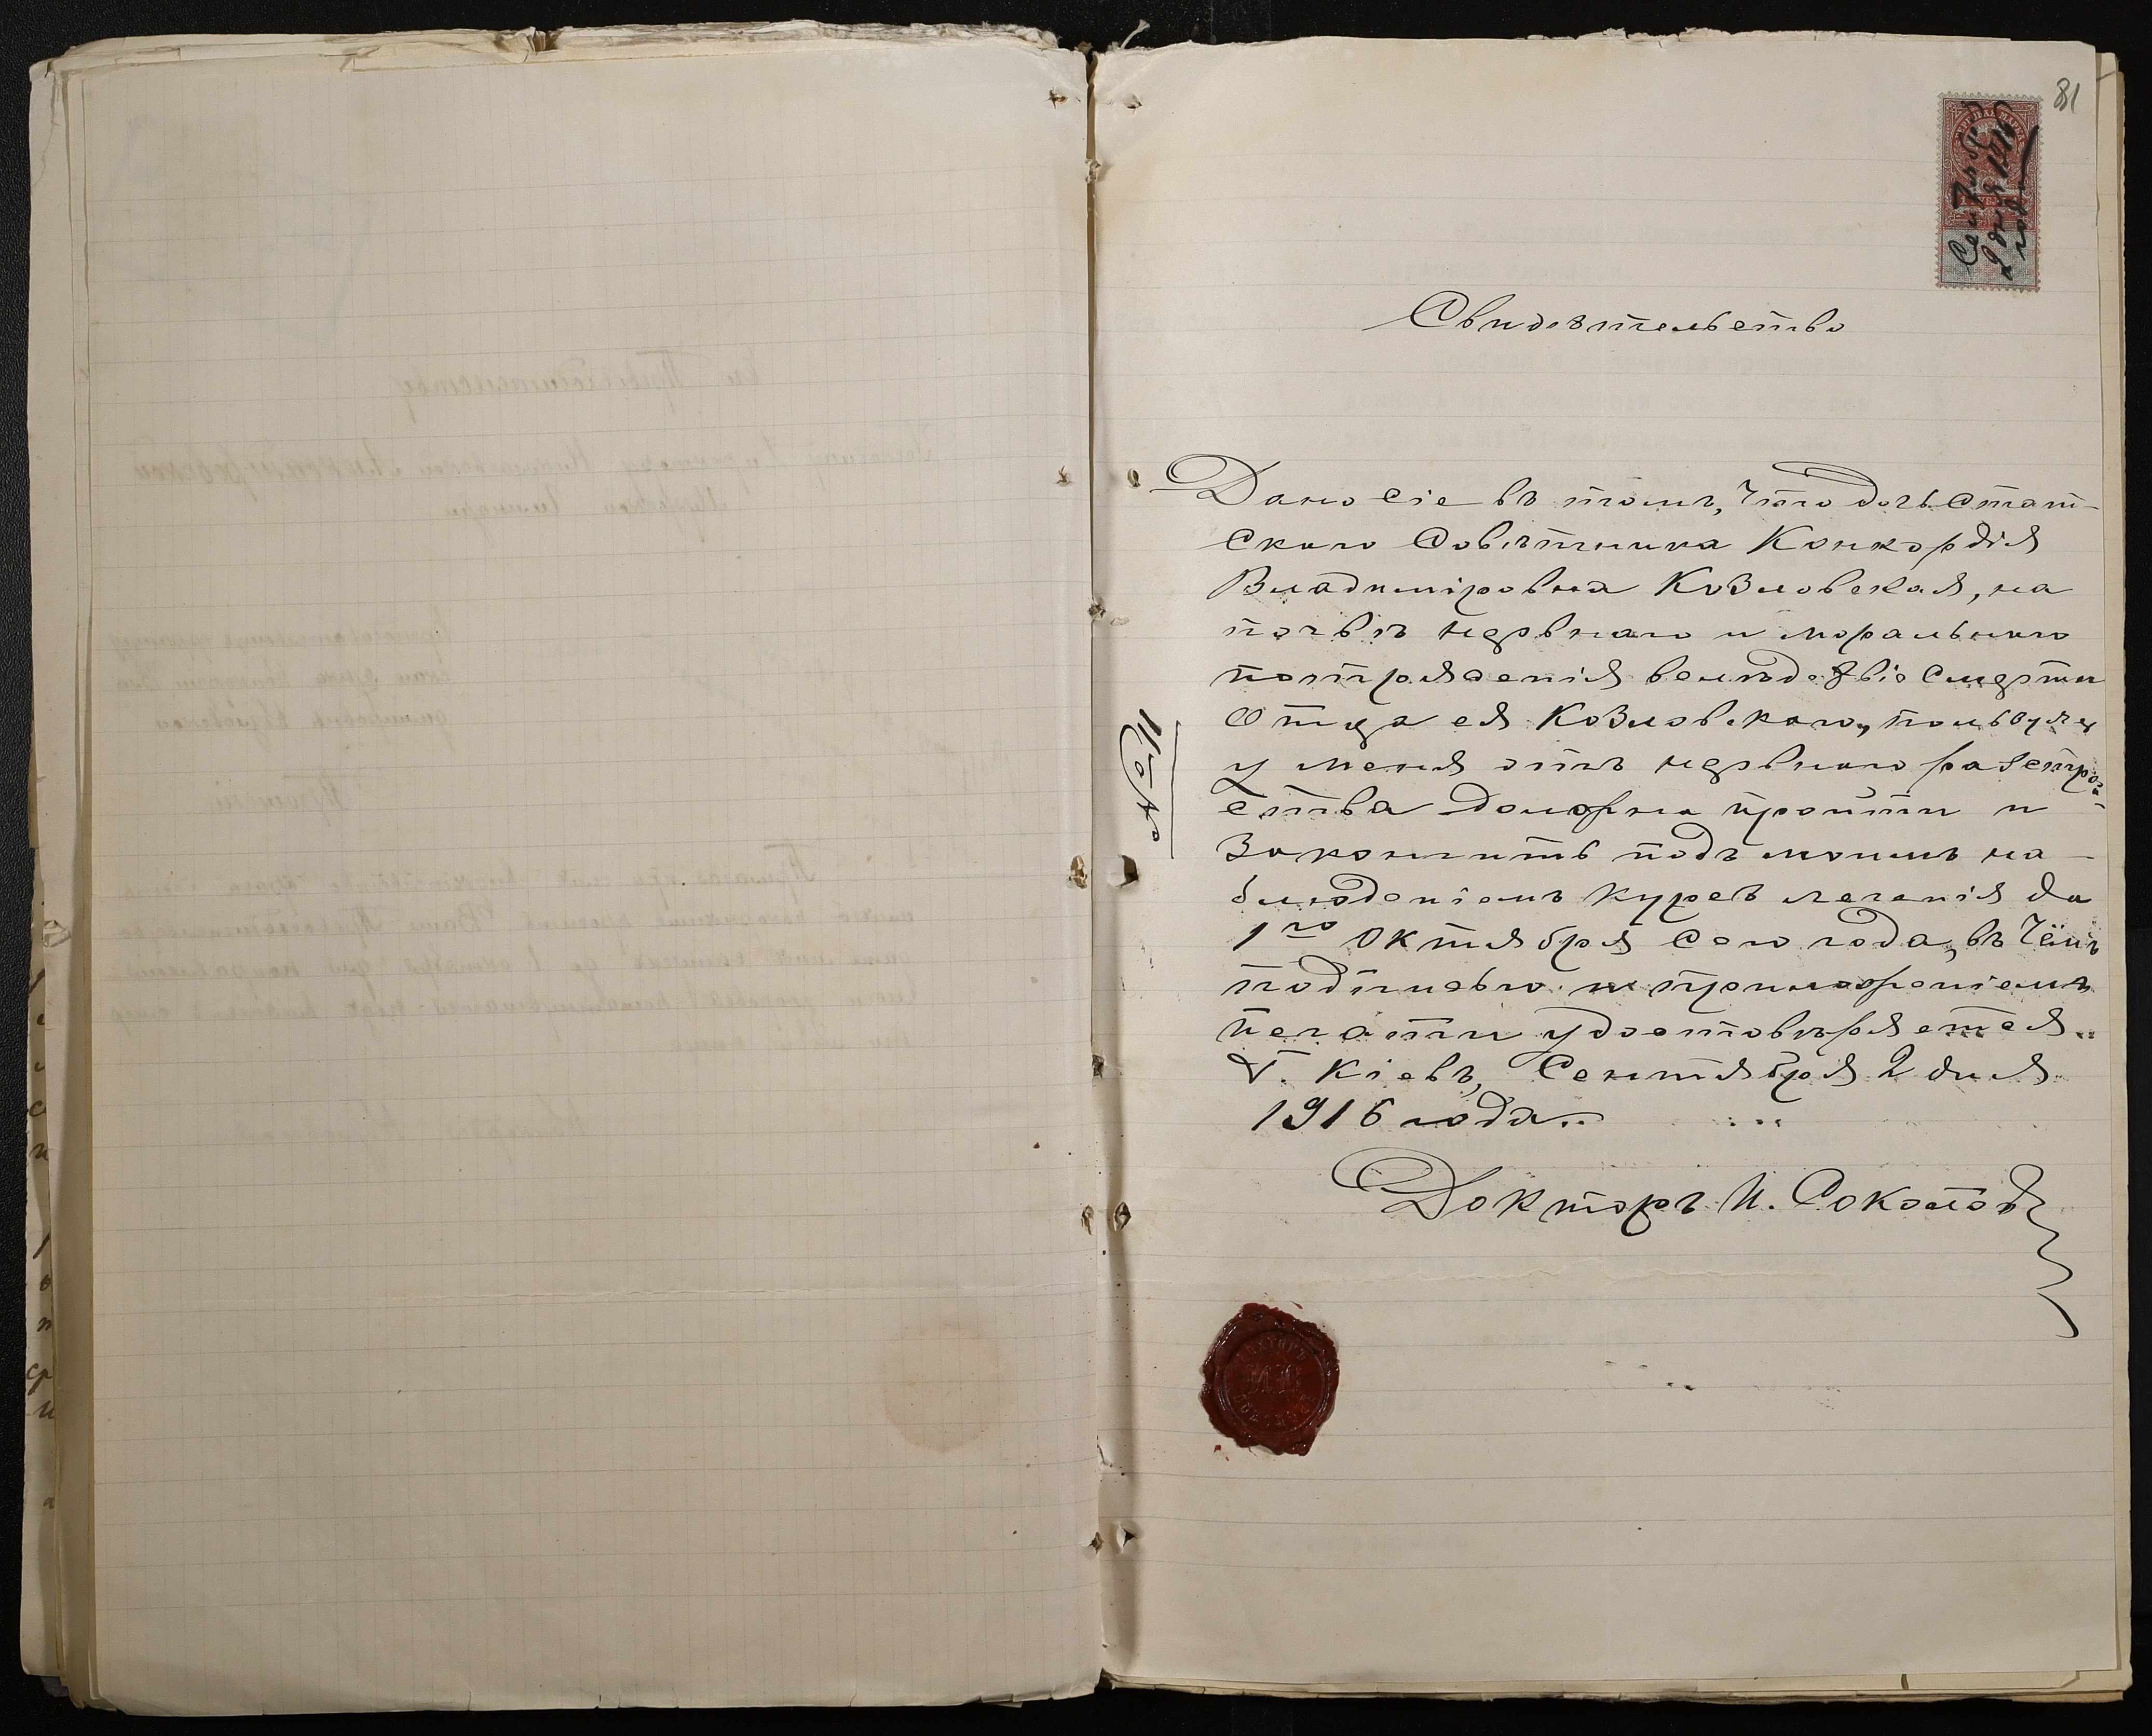 81
Сентябр
2 дня 1916
года
Свидѣтельство
Дано сіе въ томъ, что дочь Стат-
скаго Совѣтника Конкордія
Владиміровна Козловская, на
почвѣ нервнаго и моральнаго
потрясенія вслѣдствіе смерти
Отца ея Козловскаго, пользуясь
у меня отъ нервнаго разстрой-
ства должна пройти и
закончить подъ моимъ на-
блюденіемъ курсъ леченія до
1го Октября сего года, въ чёмъ
подписью и приложеніемъ
печати удостовѣряется.
Г. Кіевъ, Сентября 2 дня
1916 года.
Докторъ И. Соколовъ